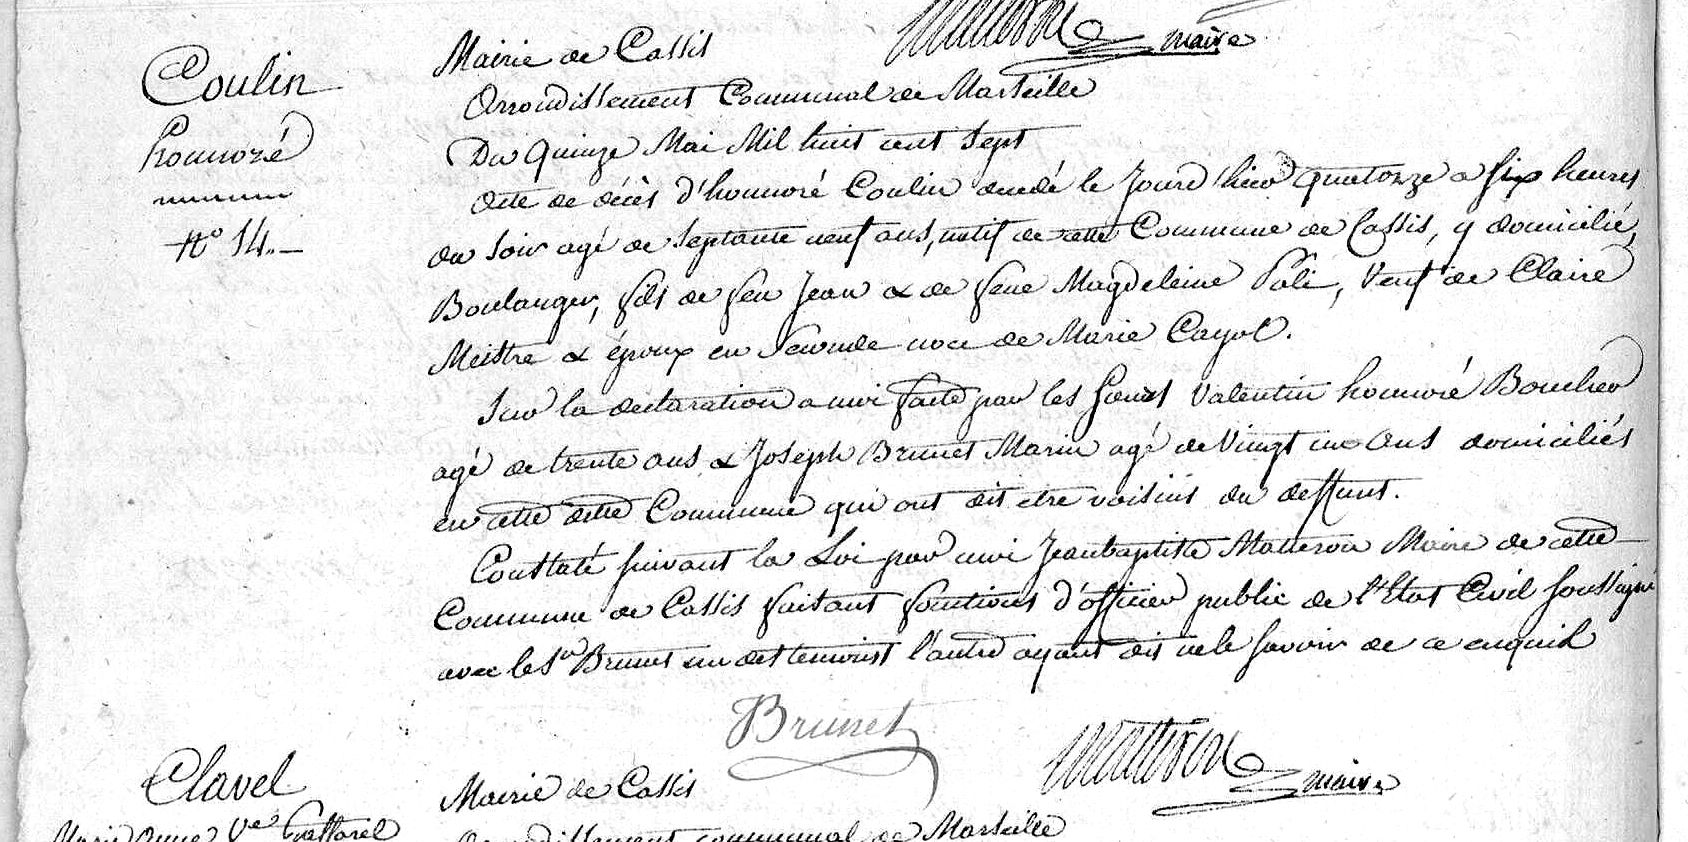 Matteron maire
Coulin
honnoré
N° 14.
Mairie de Cassis
Arrondissement Communal de Marseille
Du Quinze Mai Mil huit cent Sept
Acte de décès d'honnoré Coulin decedé le Jourd'hier quatorze a six heures
du soir agé de septante neuf ans, natif de cette Commune de Cassis, y domicilié,
Boulanger, fils de feu Jean & de feue Magdeleine Poli, Veuf de Claire
Meistre & époux en seconde noce de Marie Cayol.
Sur la declaration a moi faite par les Sieurs Valentin honnoré Boucher
agé de trente ans & Joseph Brunet Marin agé de Vingt un Ans domiciliés
en cette dite Commune qui ont dit etre voisins du deffunt.
Constaté suivant la Loi par moi Jeanbaptiste Matteron Maire de cette
Commune de Cassis faisant fonctions d'officier public de l'Etat Civil soussigné
avec le Sr Brunet un des temoins l'autre ayant dit ne le savoir de ce enquis
Brunet
Matteron maire
Clavel
Marie Anne Ve
Mairie de Cassis
Arrondissement communal de Marseille